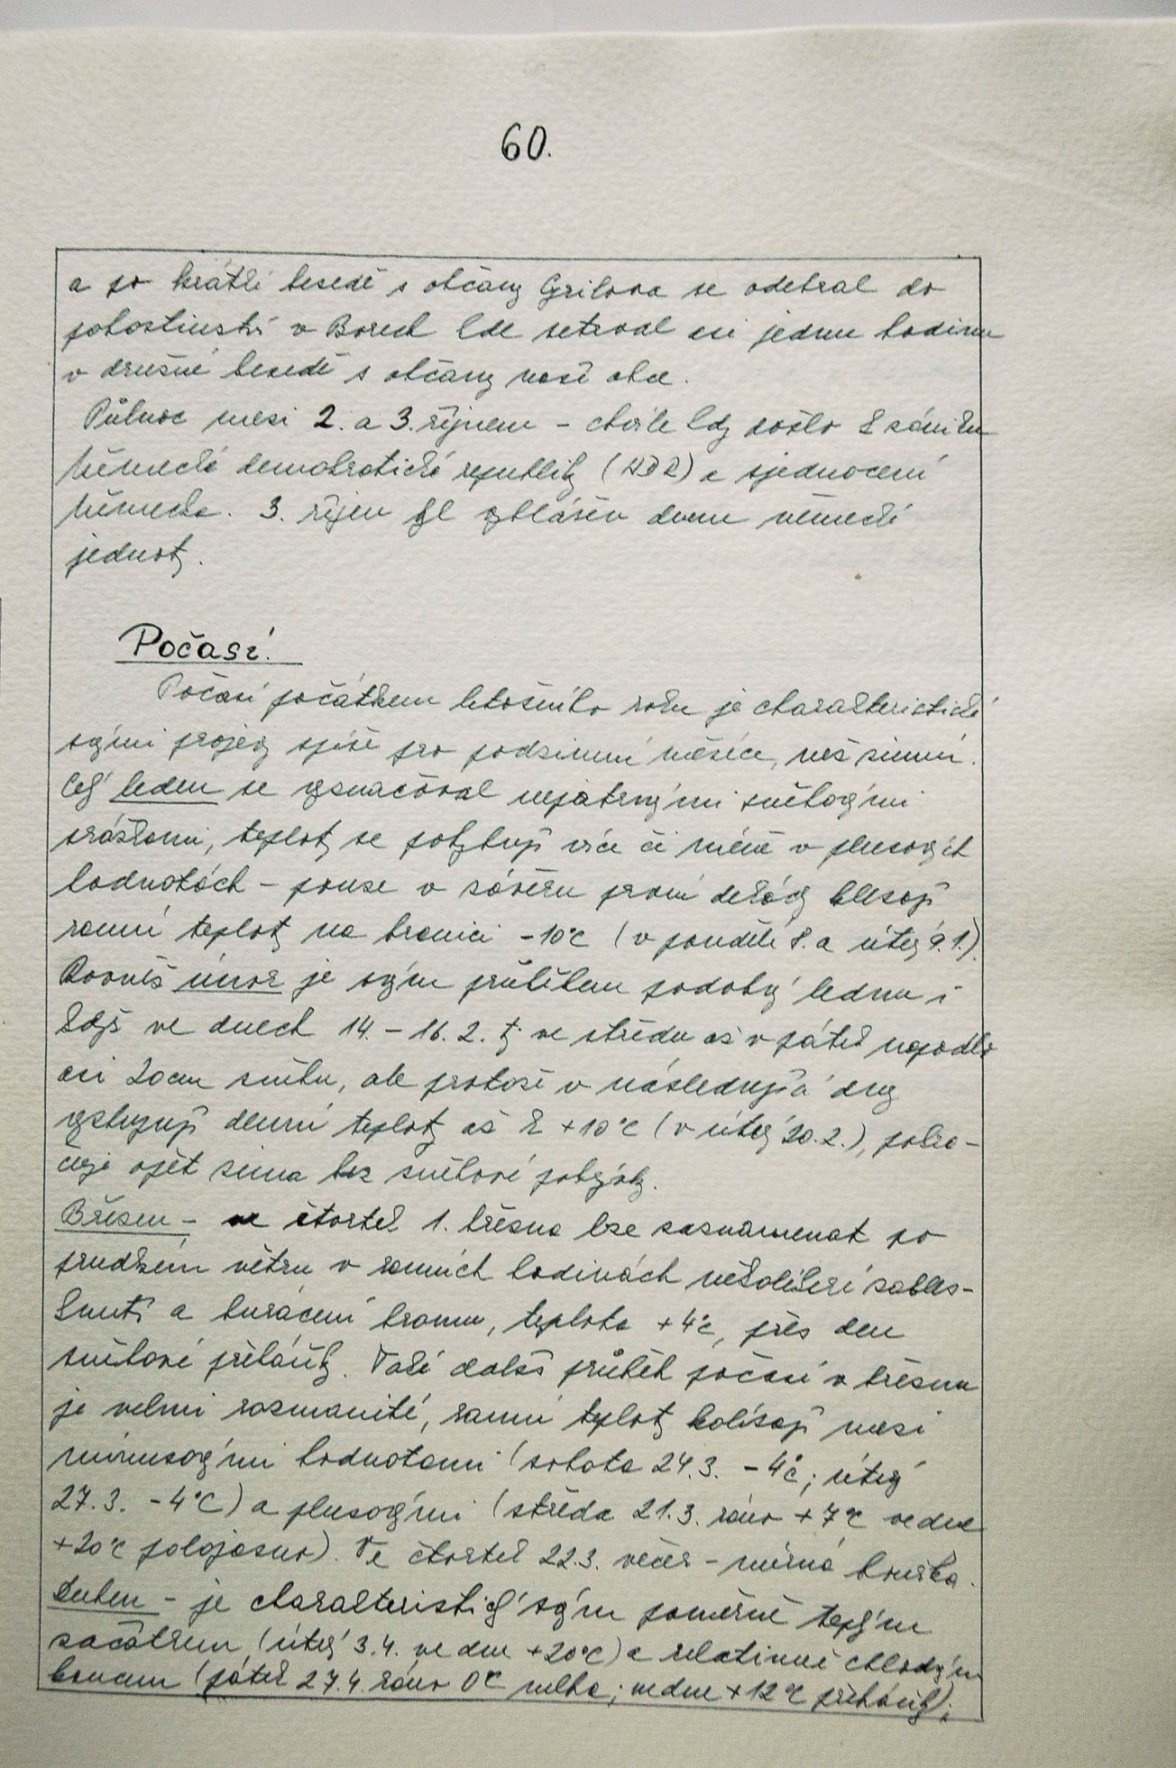 60.
a po krátké besedě s občany Grilova se odebral do
pohostinství v Borech kde setrval asi jednu hodinu
v družné besedě s občany naší obce.
Půlnoc mezi 2. a 3. říjnem - chvíle kdy došlo k zániku
Německé demokratické republiky (NDR) a sjednocení
Německa. 3. říjen byl vyhlášen dnem německé
jednoty.
Počasí.
Počasí počátkem letošního roku je charakteristické
svými projevy spíše pro podzimní měsíce, než zimní.
Celý leden se vyznačoval nepatrnými sněhovými
srážkami, teploty se pohybují více či méně v plusových
hodnotách - pouze v závěru první dekády klesají
ranní teploty na hranici -10°C (v pondělí 8. a úterý 9.1.).
Rovněž únor je svým průběhem podobný lednu i
když ve dnech 14. - 16. 2. tj. ve středu až v pátek napadlo
asi 20cm sněhu, ale protože v následující dny
vystupují denní teploty až k +10°C (v úterý 20.2.), pokra-
čuje opět zima bez sněhové pokrývky.
Březen - ve čtvrtek 1. března lze zaznamenat po
prudkém větru v ranních hodinách několikeré zables-
knutí a burácení hromu, teplota +4°C, přes den
sněhové přeháňky. Také další průběh počasí v březnu
je velmi rozmanité, ranní teploty kolísají mezi
mínusovými hodnotami (sobota 24.3. -4°C; úterý
27.3. -4°C) a plusovými (středa 21.3. ráno +7°C ve dne
+20°C polojasno). Ve čtvrtek 22.3. večer - mírná bouřka.
Duben - je charakteristický svým poměrně teplým
začátkem (úterý 3.4. ve dne +20°C) a relativně chladným
koncem (pátek 27.4. ráno 0°C mlha; ve dne +12°C přeháňky);